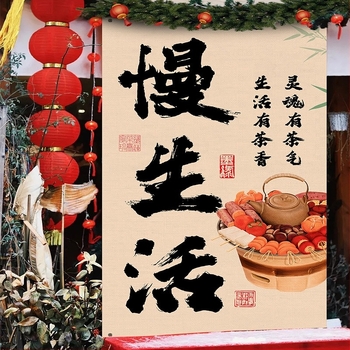 慢生活
灵魂有茶
生活有茶香